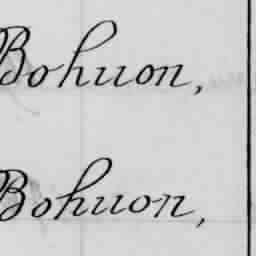 Bohuon,
Bohuon,